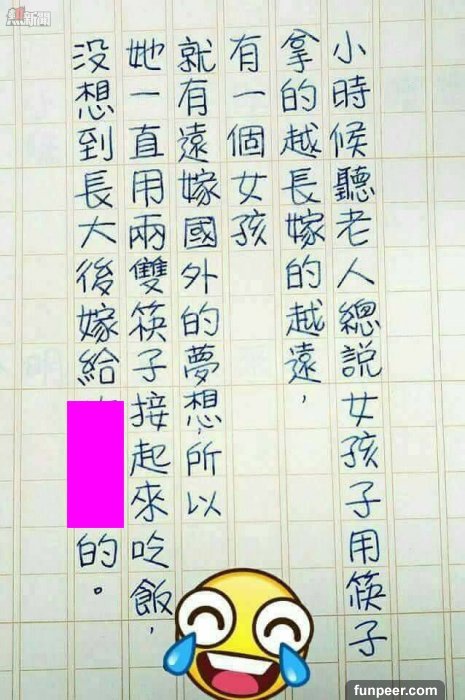 熱新聞
小時候聽老人總說女孩子用筷子
拿的越長嫁的越遠，
有一個女孩
就有遠嫁國外的夢想，所以
她一直用兩雙筷子接起來吃飯，
没想到長大後嫁給的。
funpeer.com